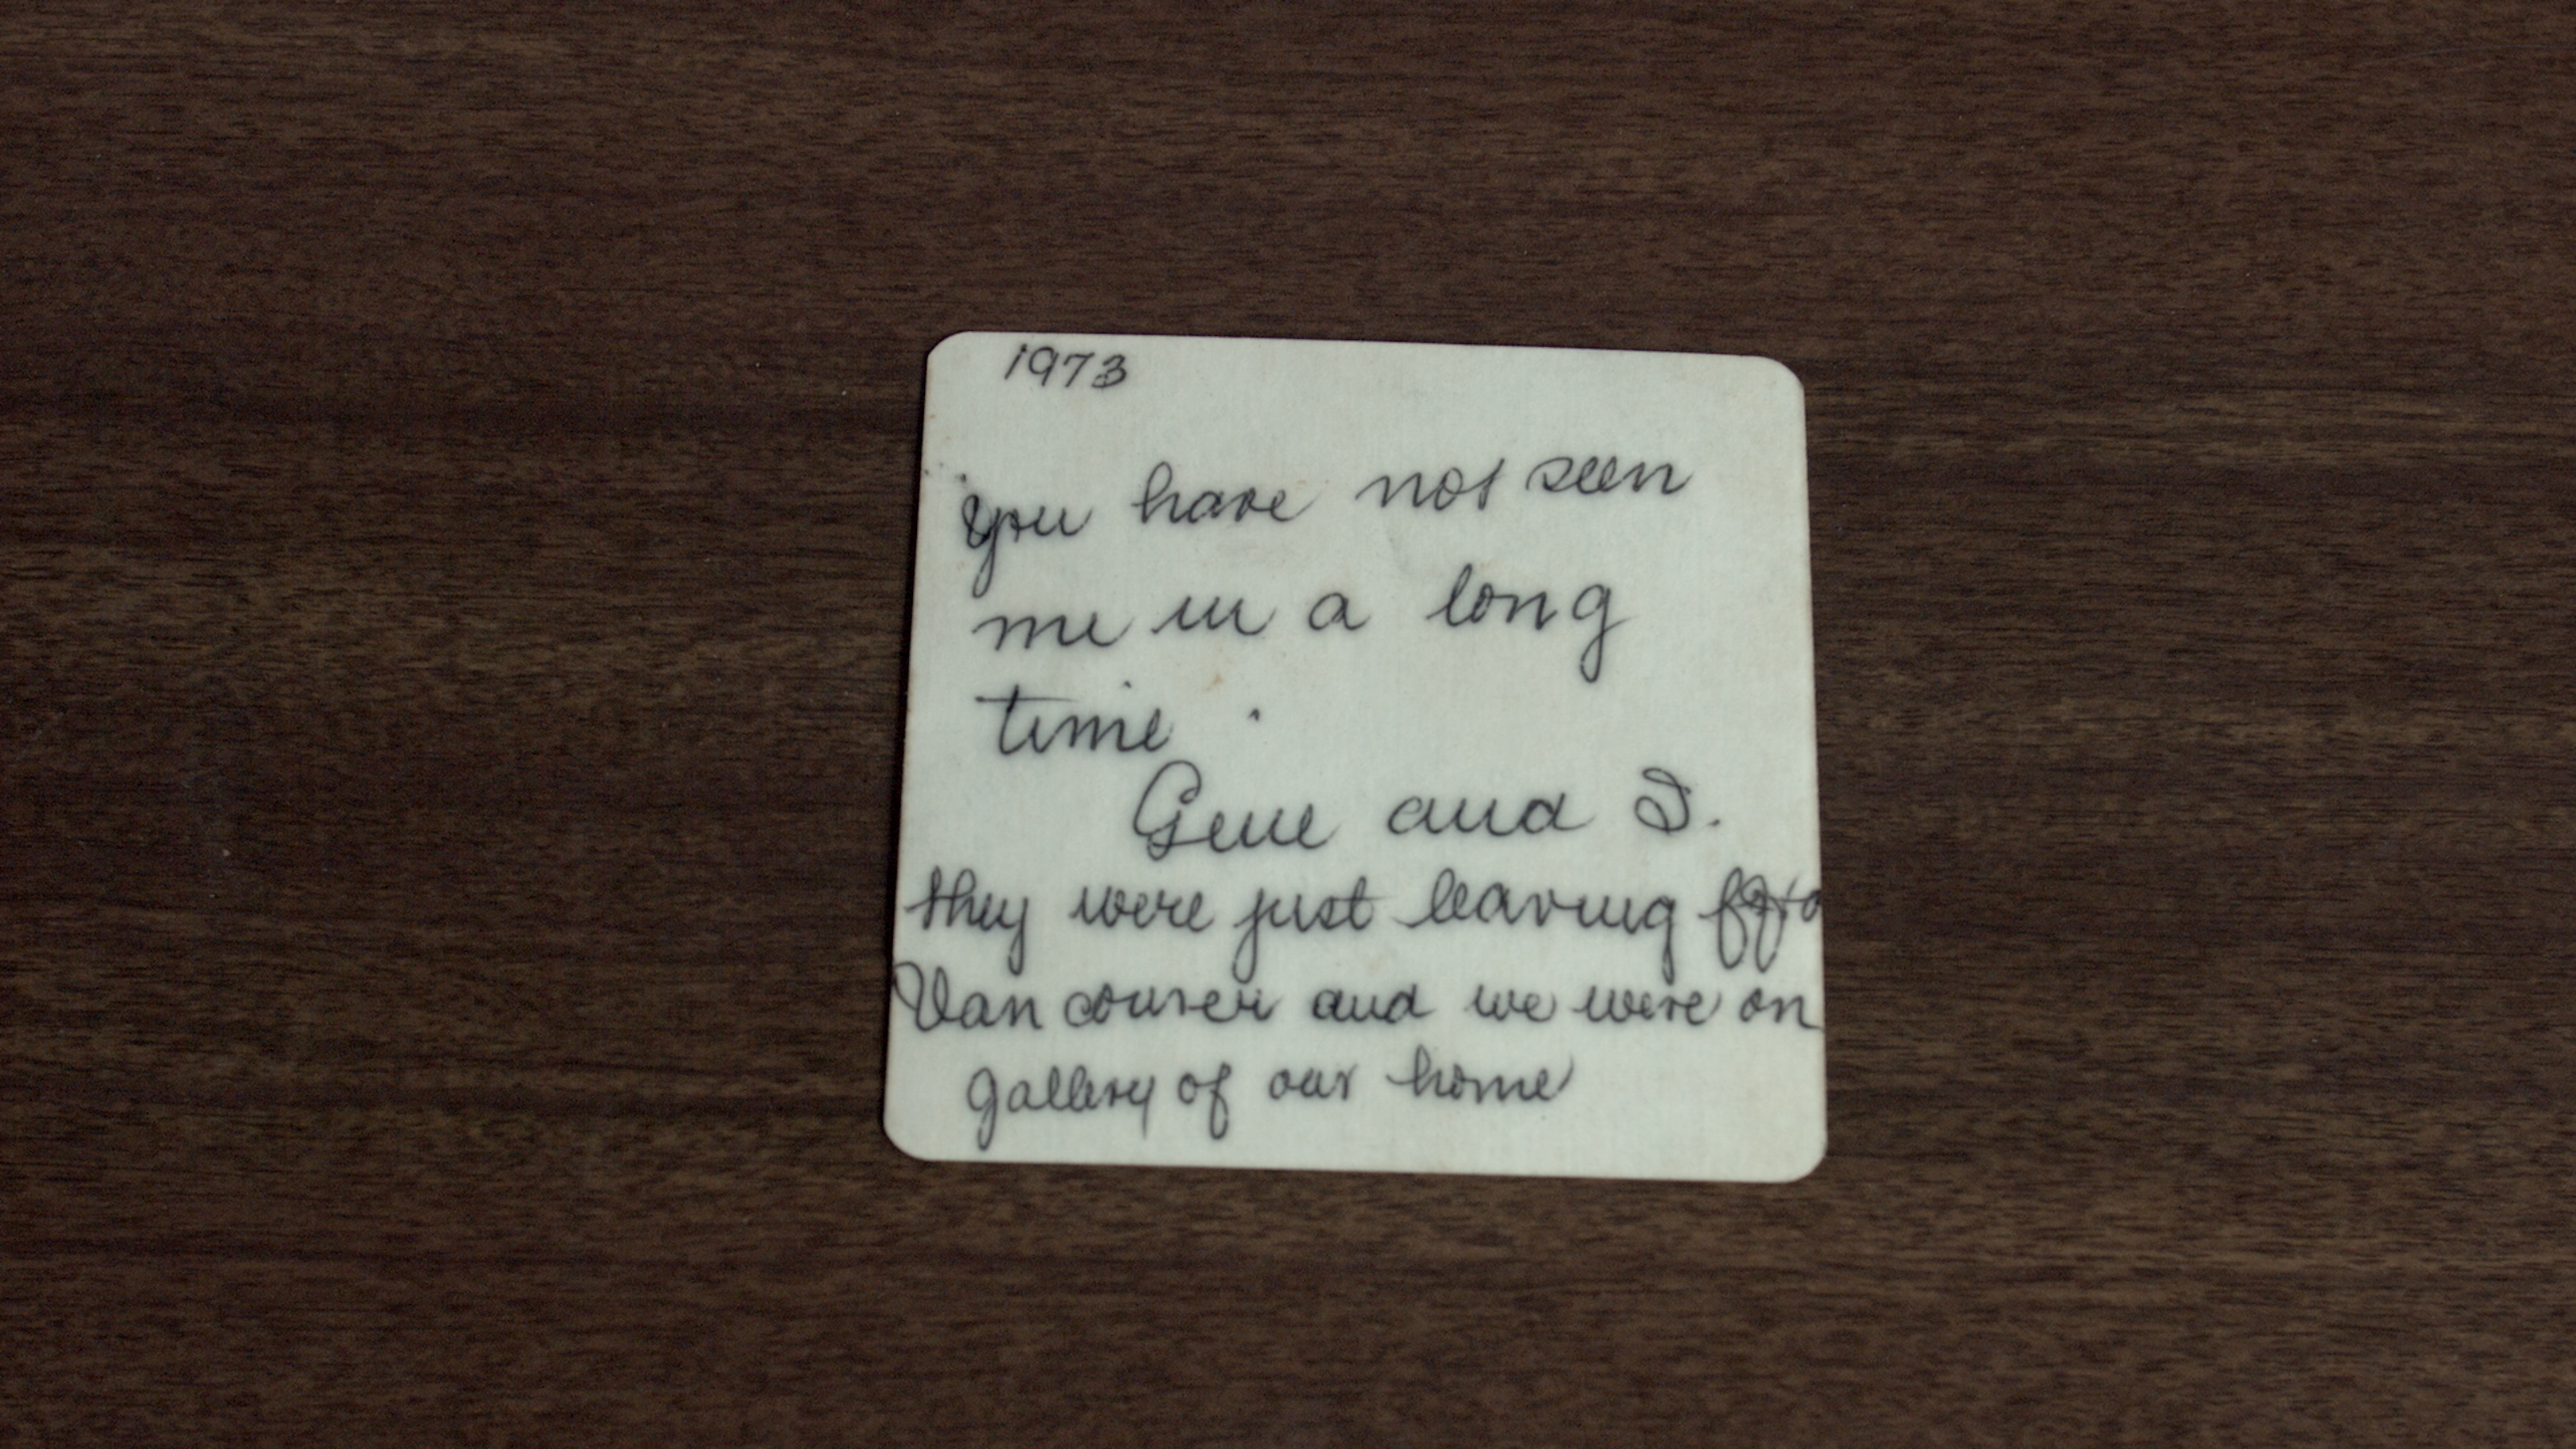 1973
you have not seen
me in a long
time.
Gene and I.
they were just leaving
Vancouver and we were on
gallery of our home